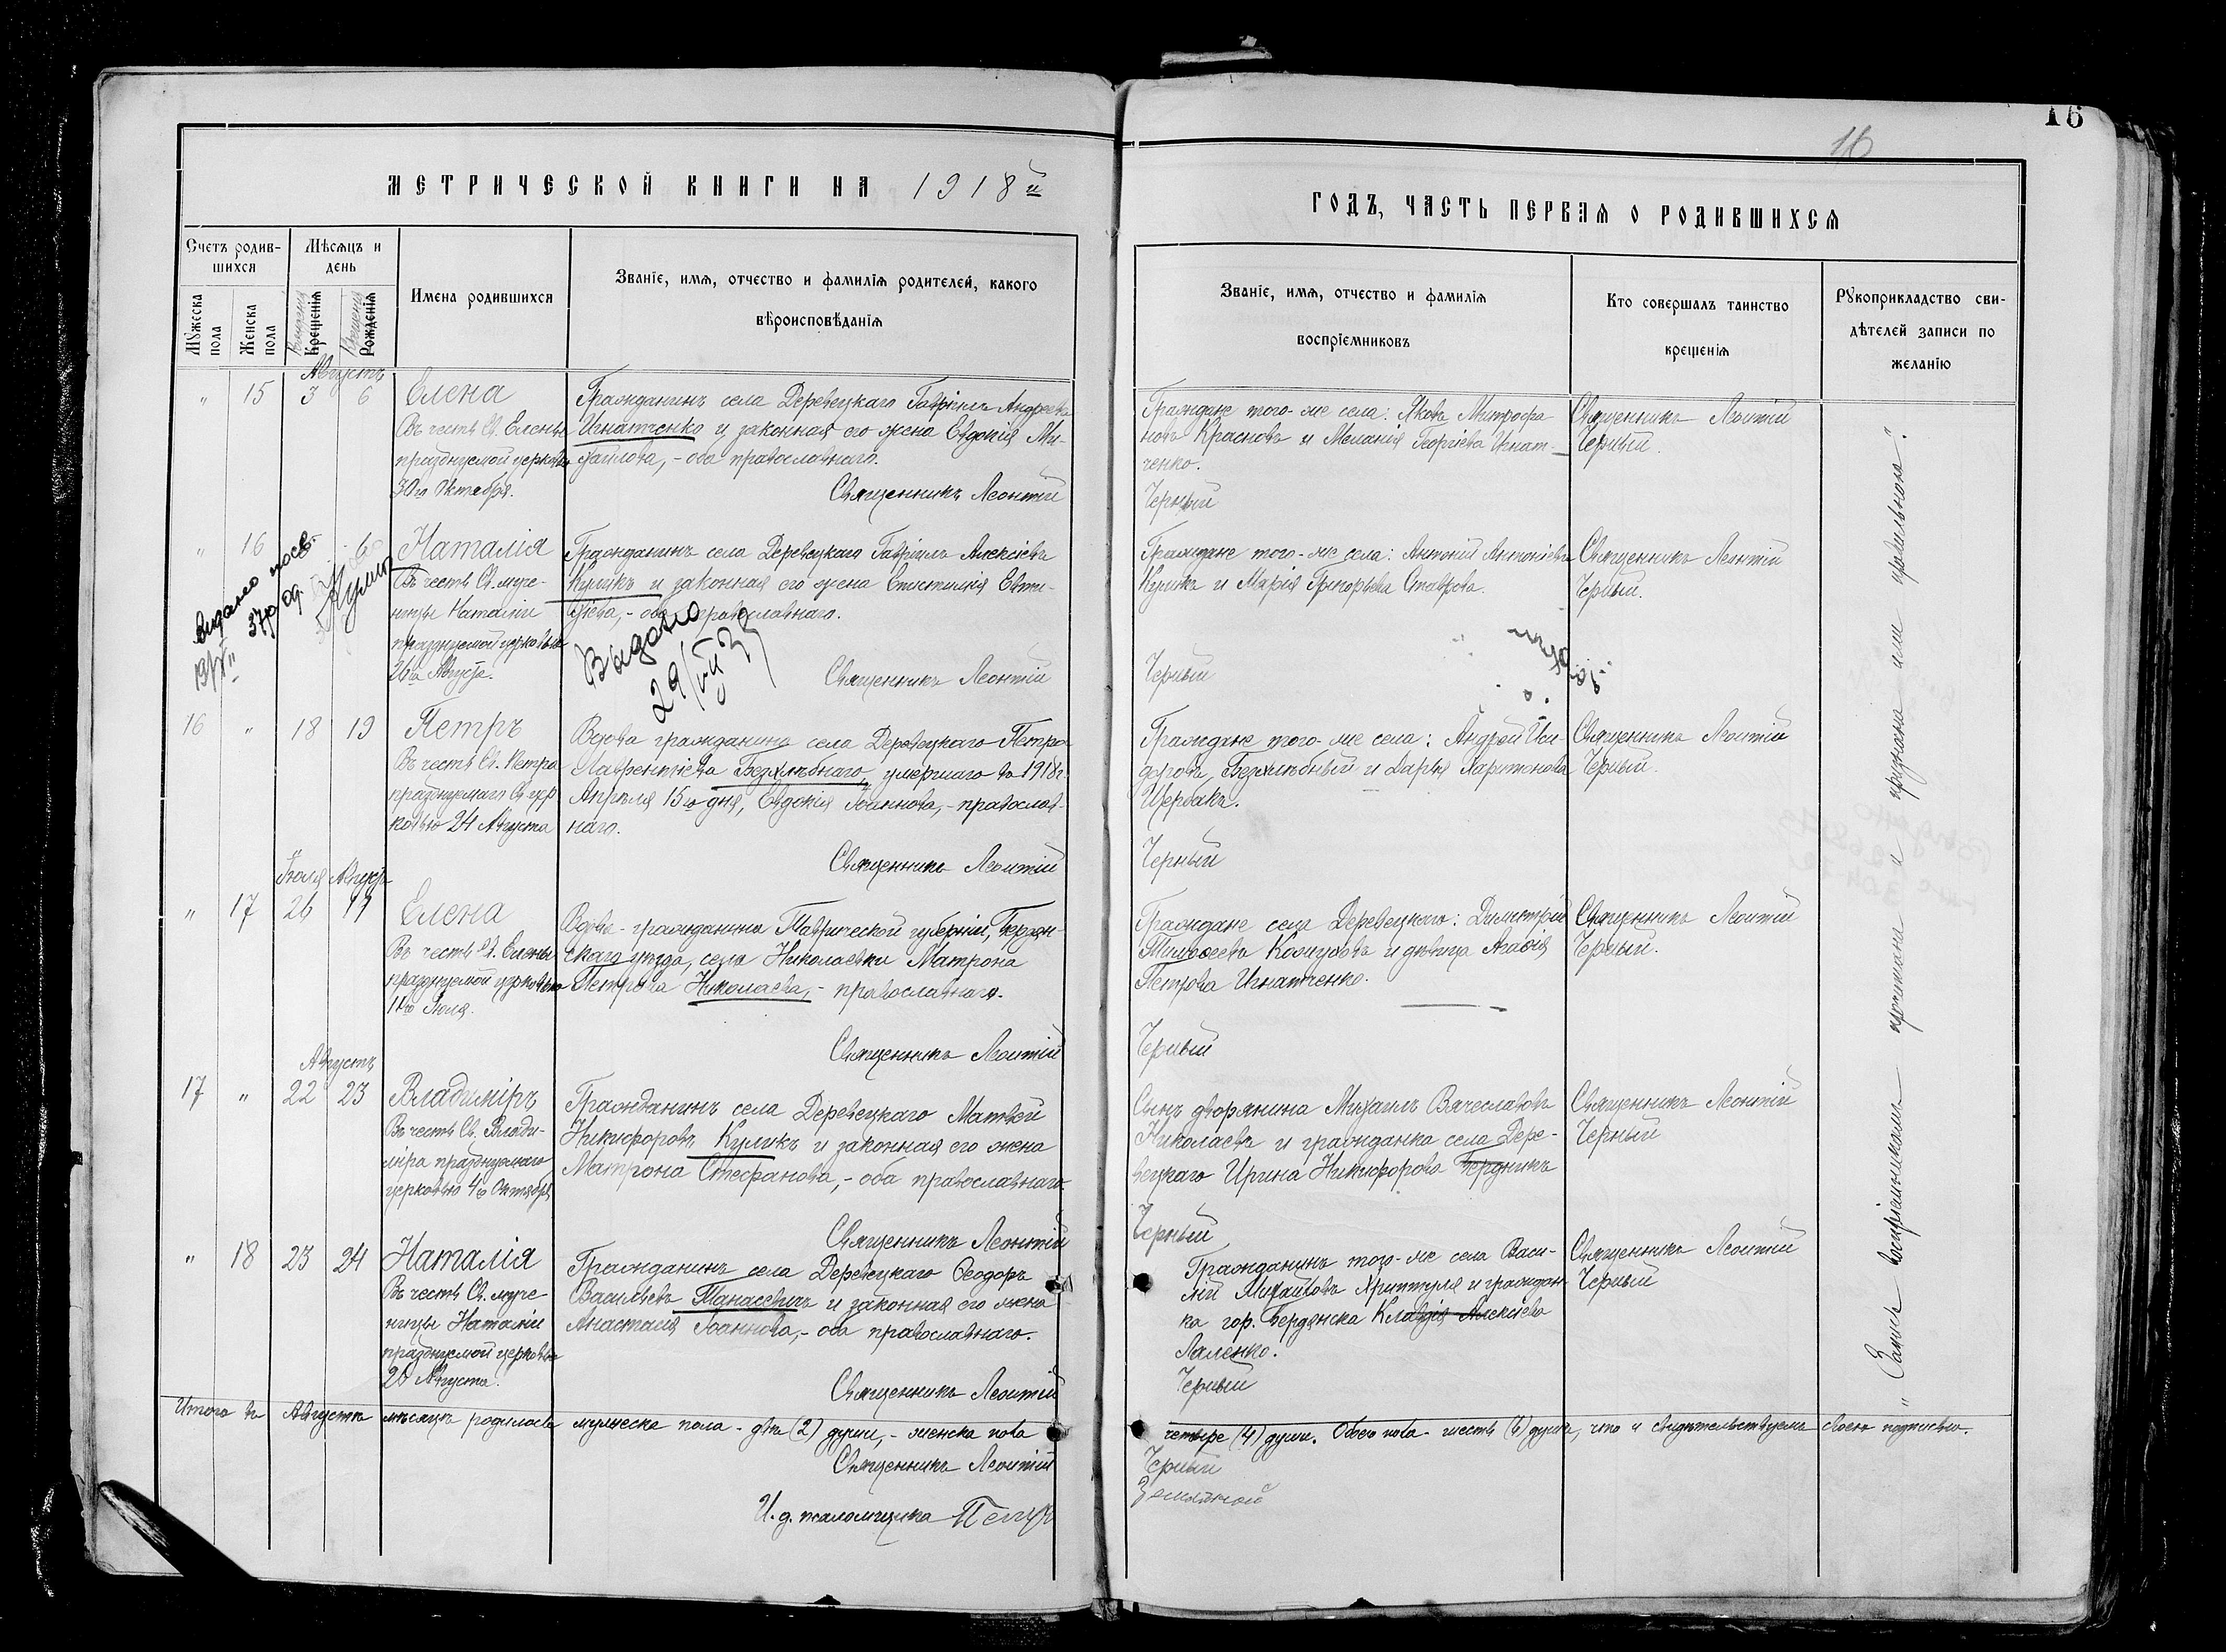 16
16
МЕТРИЧЕСКОЙ КНИГИ НА 1918й
ГОДЪ, ЧАСТЬ ПЕРВАЯ О РОДИВШИХСЯ
Счетъ родив-
шихся
Мѣсяцъ и
день
Мужеска
пола
Женска
пола
Крещенія
Рожденія
Имена родившихся
Званіе, имя, отчество и фамилія родителей, какого
вѣроисповѣданія
Званіе, имя, отчество и фамилія
воспріемниковъ
Кто совершалъ таинство
крещенія
Рукоприкладство сви-
дѣтелей записи по
желанію
Августъ
" 15 3 6 Елена
Въ честь Св. Елены
празднуемой церковью
30го Октября.
Гражданинъ села Деревецкаго Гавріилъ Андреевъ
Игнатченко и законная его жена Евдокія Ми-
хайлова, - оба православнаго.
Священникъ Леонтій
Граждане того-же села: Яковъ Митрофа
новъ Красновъ и Меланія Георгіева Игнат-
ченко.
Черный
Священникъ Леонтій
Черный.
" 16 6 Наталія
Въ честь Св. муче-
ницы Наталіи
празднуемой церковью
26го Августа.
Гражданинъ села Деревецкаго Гавріилъ Алексіевъ
Куликъ и законная его жена Епистимія Евти-
хіева, - оба православнаго.
Видано
Выдано
29/VII
Священникъ Леонтій
Граждане того-же села: Антоній Антоніевъ
Куликъ и Марія Григорьева Ставрова.
Черный
Священникъ Леонтій
Черный.
16 " 18 19 Петръ
Въ честь Св. Петра
празднуемаго Св. цер
ковью 24 Августа
Вдова гражданина села Деревецкаго Петра
Лаврентіева Безхлѣбнаго, умершаго въ 1918г.
Апрѣля 15го дня, Евдокія Іоаннова, - православ-
наго.
Священникъ Леонтій
Граждане того-же села: Андрей Иси-
доровъ Безхлѣбный и Дарья Харитонова
Щербакъ.
Черный
Священникъ Леонтій
Черный.
Іюля Августъ
" 17 26 19 Елена
Въ честь Св. Елены
празднуемой церковью
11го Іюля.
Вдова - гражданина Таврической губерніи, Бердян-
скаго уѣзда, села Николаевки Матрона
Петрова Николаева, - православнаго.
Священникъ Леонтій
Граждане села Деревецкаго: Димитрій
Тимофеевъ Кожуховъ и дѣвица Агафія
Петрова Игнатченко.
Черный
Священникъ Леонтій
Черный.
Августъ
17 " 22 23 Владиміръ
Въ честь Св. Влади-
міра празднуемаго
церковью 4го Октября
Гражданинъ села Деревецкаго Матвѣй
Никифоровъ Куликъ и законная его жена
Матрона Стефанова, - оба православнаго.
Священникъ Леонтій
Сынъ дворянина Михаилъ Вячеславовъ
Николаевъ и гражданка села Дере-
вецкаго Ирина Никифорова Бердникъ
Черный
Священникъ Леонтій
Черный
" 18 23 24 Наталія
Въ честь Св. муче-
ницы Наталіи
празднуемой церковью
26 Августа.
Гражданинъ села Деревецкаго Ѳеодоръ
Васильевъ Танасевичъ и законная его жена
Анастасія Іоаннова, - оба православнаго.
Священникъ Леонтій
Гражданинъ того-же села Васи-
лій Михайловъ Хриптуля и граждан-
ка гор. Бердянска Клавдія Алексіева
Ляленко.
Черный
Священникъ Леонтій
Черный
Итого въ Августѣ мѣсяцѣ родилось мужеска пола - два (2) души, - женска пола
четыре (4) души. Обоего пола - шесть (6) душъ, что и свидѣтельствуемъ своею подписью.
Священникъ Леонтій
Черный
И. д. псаломщика Петръ
Земляной
" Запись воспріемникамъ прочитана и признана ими правильною ".